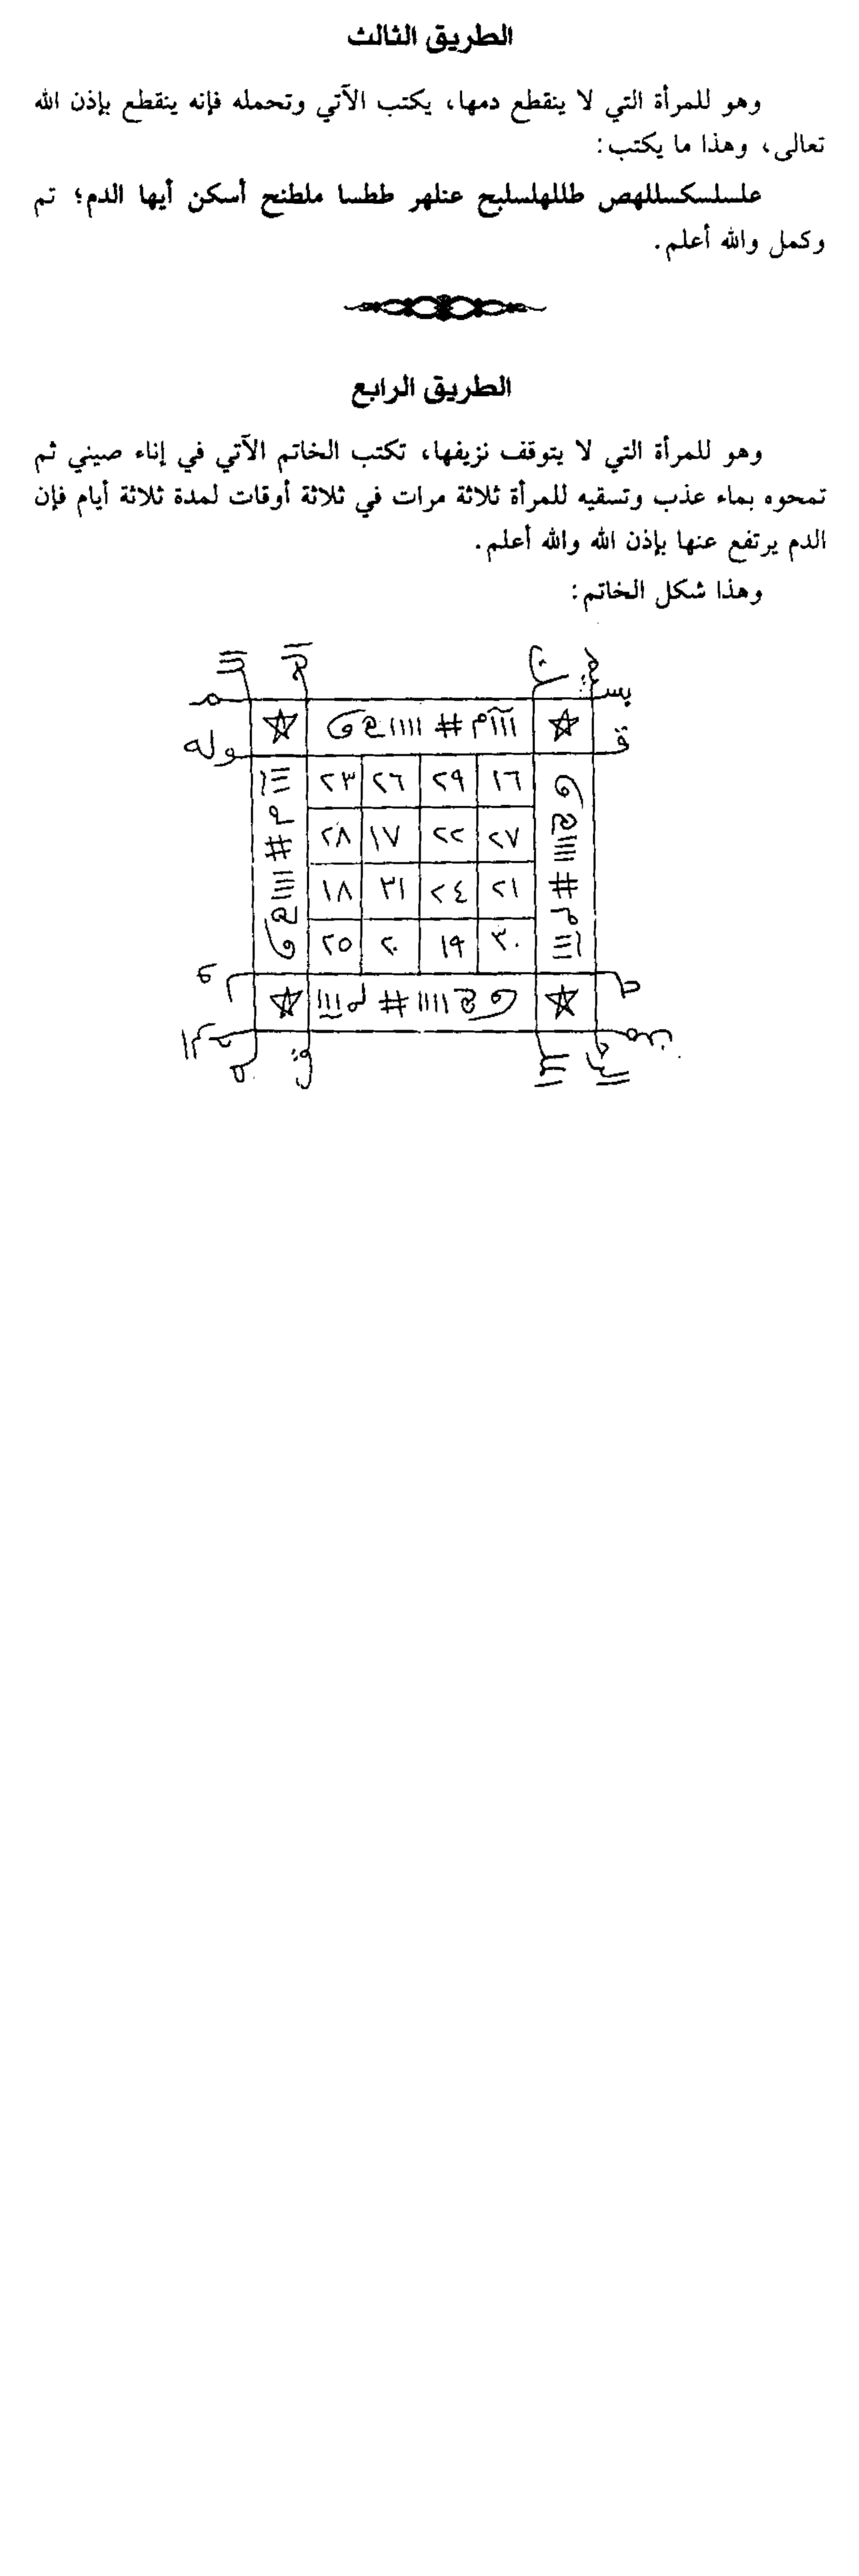 الطريق الثالث
وهو للمرأة التي لا ينقطع دمها، يكتب الآتي وتحمله فإنه ينقطع بإذن الله
تعالى، وهذا ما يكتب:
علسلسكسللهص طللهلسلبح عنلهر ططسا ملطنح أسكن أيها الدم؛ تم
وكمل والله أعلم.
الطريق الرابع
وهو للمرأة التي لا يتوقف نزيفها، تكتب الخاتم الآتي في إناء صيني ثم
تمحوه بماء عذب وتسقيه للمرأة ثلاثة مرات في ثلاثة أوقات لمدة ثلاثة أيام فإن
الدم يرتفع عنها بإذن الله والله أعلم.
وهذا شكل الخاتم:
بسم
ق وله
١٦ ٢٩ ٢٦ ٢٣
٢٧ ٢٢ ١٧ ٢٨
٢١ ٢٤ ٣١ ١٨
٣٠ ١٩ ٢٠ ٢٥